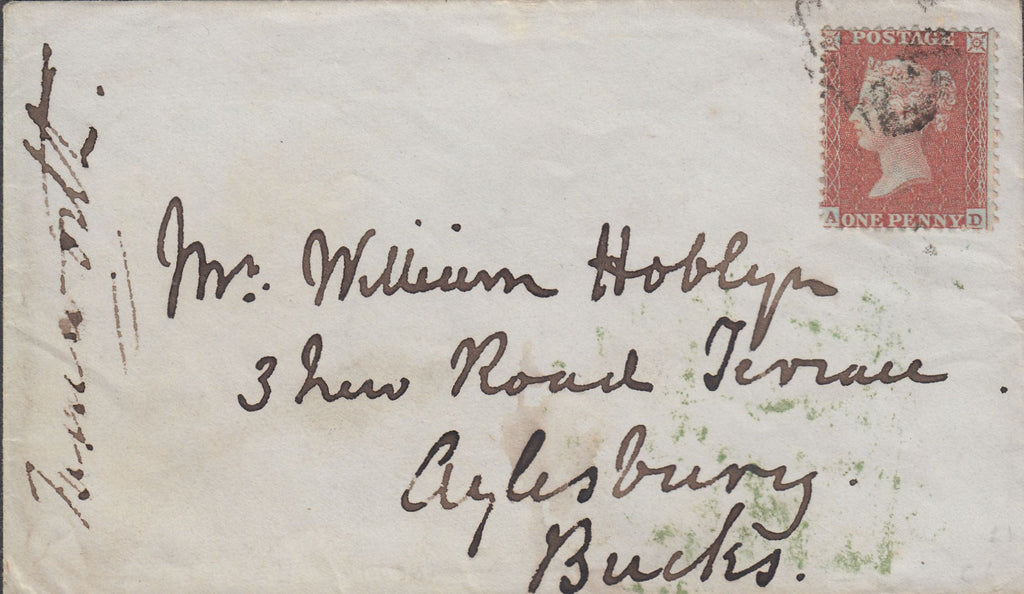 POSTAGE
A ONE PENNY D
Mr. William Hoblyn
3 New Road Terrace
Aylesbury.
Bucks.